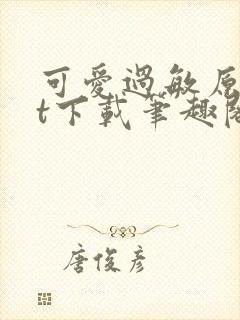 可愛過敏原
t下載筆趣閣
唐俊彥